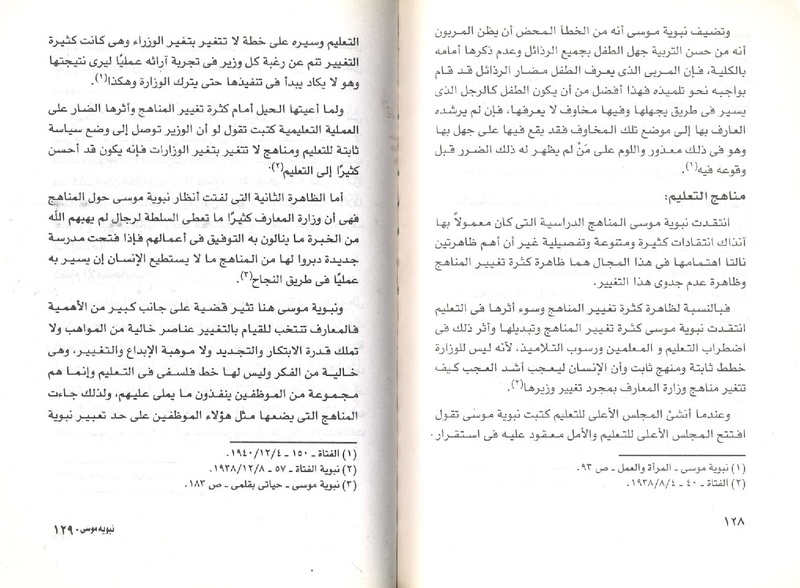 وتضيف نبوية موسى أنه من الخطأ المحض أن يظن المربون
أنه من حسن التربية جهل الطفل بجميع الرذائل وعدم ذكرها أمامه
بالكلية، فإن المربى الذى يعرف الطفل مضار الرذائل قد قام
بواجبه نحو تلميذه فهذا أفضل من أن يكون الطفل كالرجل الذى
يسير فى طريق يجهلها وفيها مخاوف لا يعرفها، فإن لم يرشده
العارف بها إلى موضع تلك المخاوف فقد يقع فيها على جهل بها
وهو فى ذلك معذور واللوم على مَنْ لم يظهر له ذلك الضرر قبل
وقوعه فيه(١).
مناهج التعليم:
انتقدت نبوية موسى المناهج الدراسية التى كان معمولاً بها
آنذاك انتقادات كثيرة ومتنوعة وتفصيلية غير أن أهم ظاهرتين
نالتا اهتمامها فى هذا المجال هما ظاهرة كثرة تغيير المناهج
وظاهرة عدم جدوى هذا التغيير.
فبالنسبة لظاهرة كثرة تغيير المناهج وسوء أثرها فى التعليم
انتقدت نبوية موسى كثرة تغيير المناهج وتبديلها وأثر ذلك فى
اضطراب التعليم و المعلمين ورسوب التلاميذ، لأنه ليس للوزارة
خطط ثابتة ومنهج ثابت وأن الإنسان ليعجب أشد العجب كيف
تتغير مناهج وزارة المعارف بمجرد تغيير وزيرها(٢).
وعندما أنشئ المجلس الأعلى للتعليم كتبت نبوية موسى تقول
افتتح المجلس الأعلى للتعليم والأمل معقود عليه فى استقرار.
(١) نبوية موسى ـ المرأة والعمل ـ ص ٩٣.
(٢) الفتاة ـ ٤٠ ـ ١٩٣٨/٨/٤.
١٢٨
التعليم وسيره على خطة لا تتغير بتغير الوزراء وهى كانت كثيرة
التغيير تتم عن رغبة كل وزير فى تجربة آرائه عمليًا ليرى نتيجتها
وهو لا يكاد يبدأ فى تنفيذها حتى يترك الوزارة وهكذا(١).
ولما أعيتها الحيل أمام كثرة تغيير المناهج وأثرها الضار على
العملية التعليمية كتبت تقول لو أن الوزير توصل إلى وضع سياسة
ثابتة للتعليم ومناهج لا تتغير بتغير الوزارات فإنه يكون قد أحسن
كثيرًا إلى التعليم(٢).
أما الظاهرة الثانية التى لفتت أنظار نبوية موسى حول المناهج
فهى أن وزارة المعارف كثيرًا ما تعطى السلطة لرجال لم يهبهم الله
من الخبرة ما ينالون به التوفيق فى أعمالهم فإذا فتحت مدرسة
جديدة دبروا لها من المناهج ما لا يستطيع الإنسان إن يسير به
عمليًا فى طريق النجاح(٣).
ونبوية موسى هنا تثير قضية على جانب كبير من الأهمية
فالمعارف تنتخب للقيام بالتغيير عناصر خالية من المواهب ولا
تملك قدرة الابتكار والتجديد ولا موهبة الإبداع والتغيير، وهى
خالية من الفكر وليس لها خط فلسفى فى التعليم وإنما هم
مجموعة من الموظفين ينفذون ما يملى عليهم، ولذلك جاءت
المناهج التى يضعها مثل هؤلاء الموظفين على حد تعبير نبوية
(١) الفتاة ـ ١٥٠ ـ ١٩٤٠/١٢/٤.
(٢) نبوية الفتاة ـ ٥٧ ـ ١٩٣٨/١٢/٨.
(٣) نبوية موسى ـ حياتى بقلمى ـ ص ١٨٣.
نبويه موسى ٠ ١٢٩